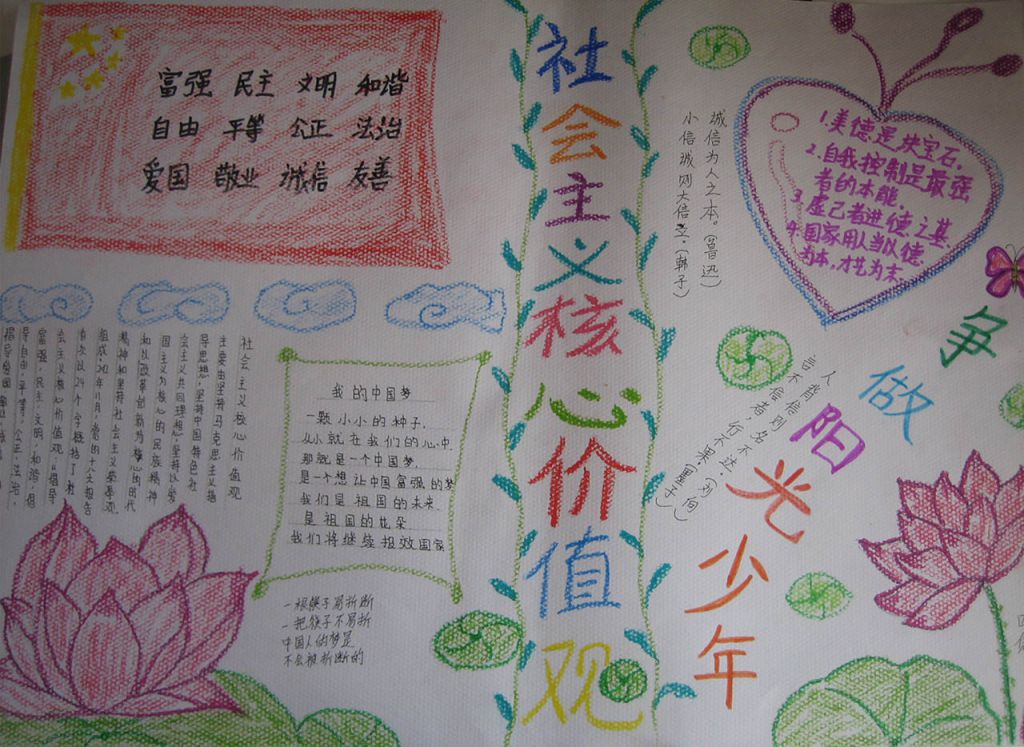 富强 民主 文明 和谐
自由 平等 公正 法治
爱国 敬业 诚信 友善
社会主义核心价值观
主要由坚持马克思主义指
导思想,坚持中国特色社
会主义共同理想,坚持以爱
国主义为核心的民族精神
和以改革创新为核心的时代
精神和坚持社会主义荣辱观
组成,2012年11月,党的十八大报告
首次以24个字概括了社
会主义核心价值观:“倡导
富强,民主,文明,和谐,倡
导自由,平等,公正,法治,
我的中国梦
一颗小小的种子,
从小就在我们的心中
那就是一个中国梦.
是一个想让中国富强的梦
我们是祖国的未来
是祖国的花朵
我们将继续报效国家
一根筷子易折断
一把筷子不易折
中国人的梦是
不会被折断的
社会主义核心价值观
诚信为人之本。(鲁迅)
小信诚则大信立.(韩子)
1.美德是块宝石,
2.自我控制是最强
者的本能.
3.虚己者进德之基
4.国家用人当以德
为本,才艺为末
人背信则名不达.(刘向)
言不信者,行不果.(墨子)
争做阳光少年